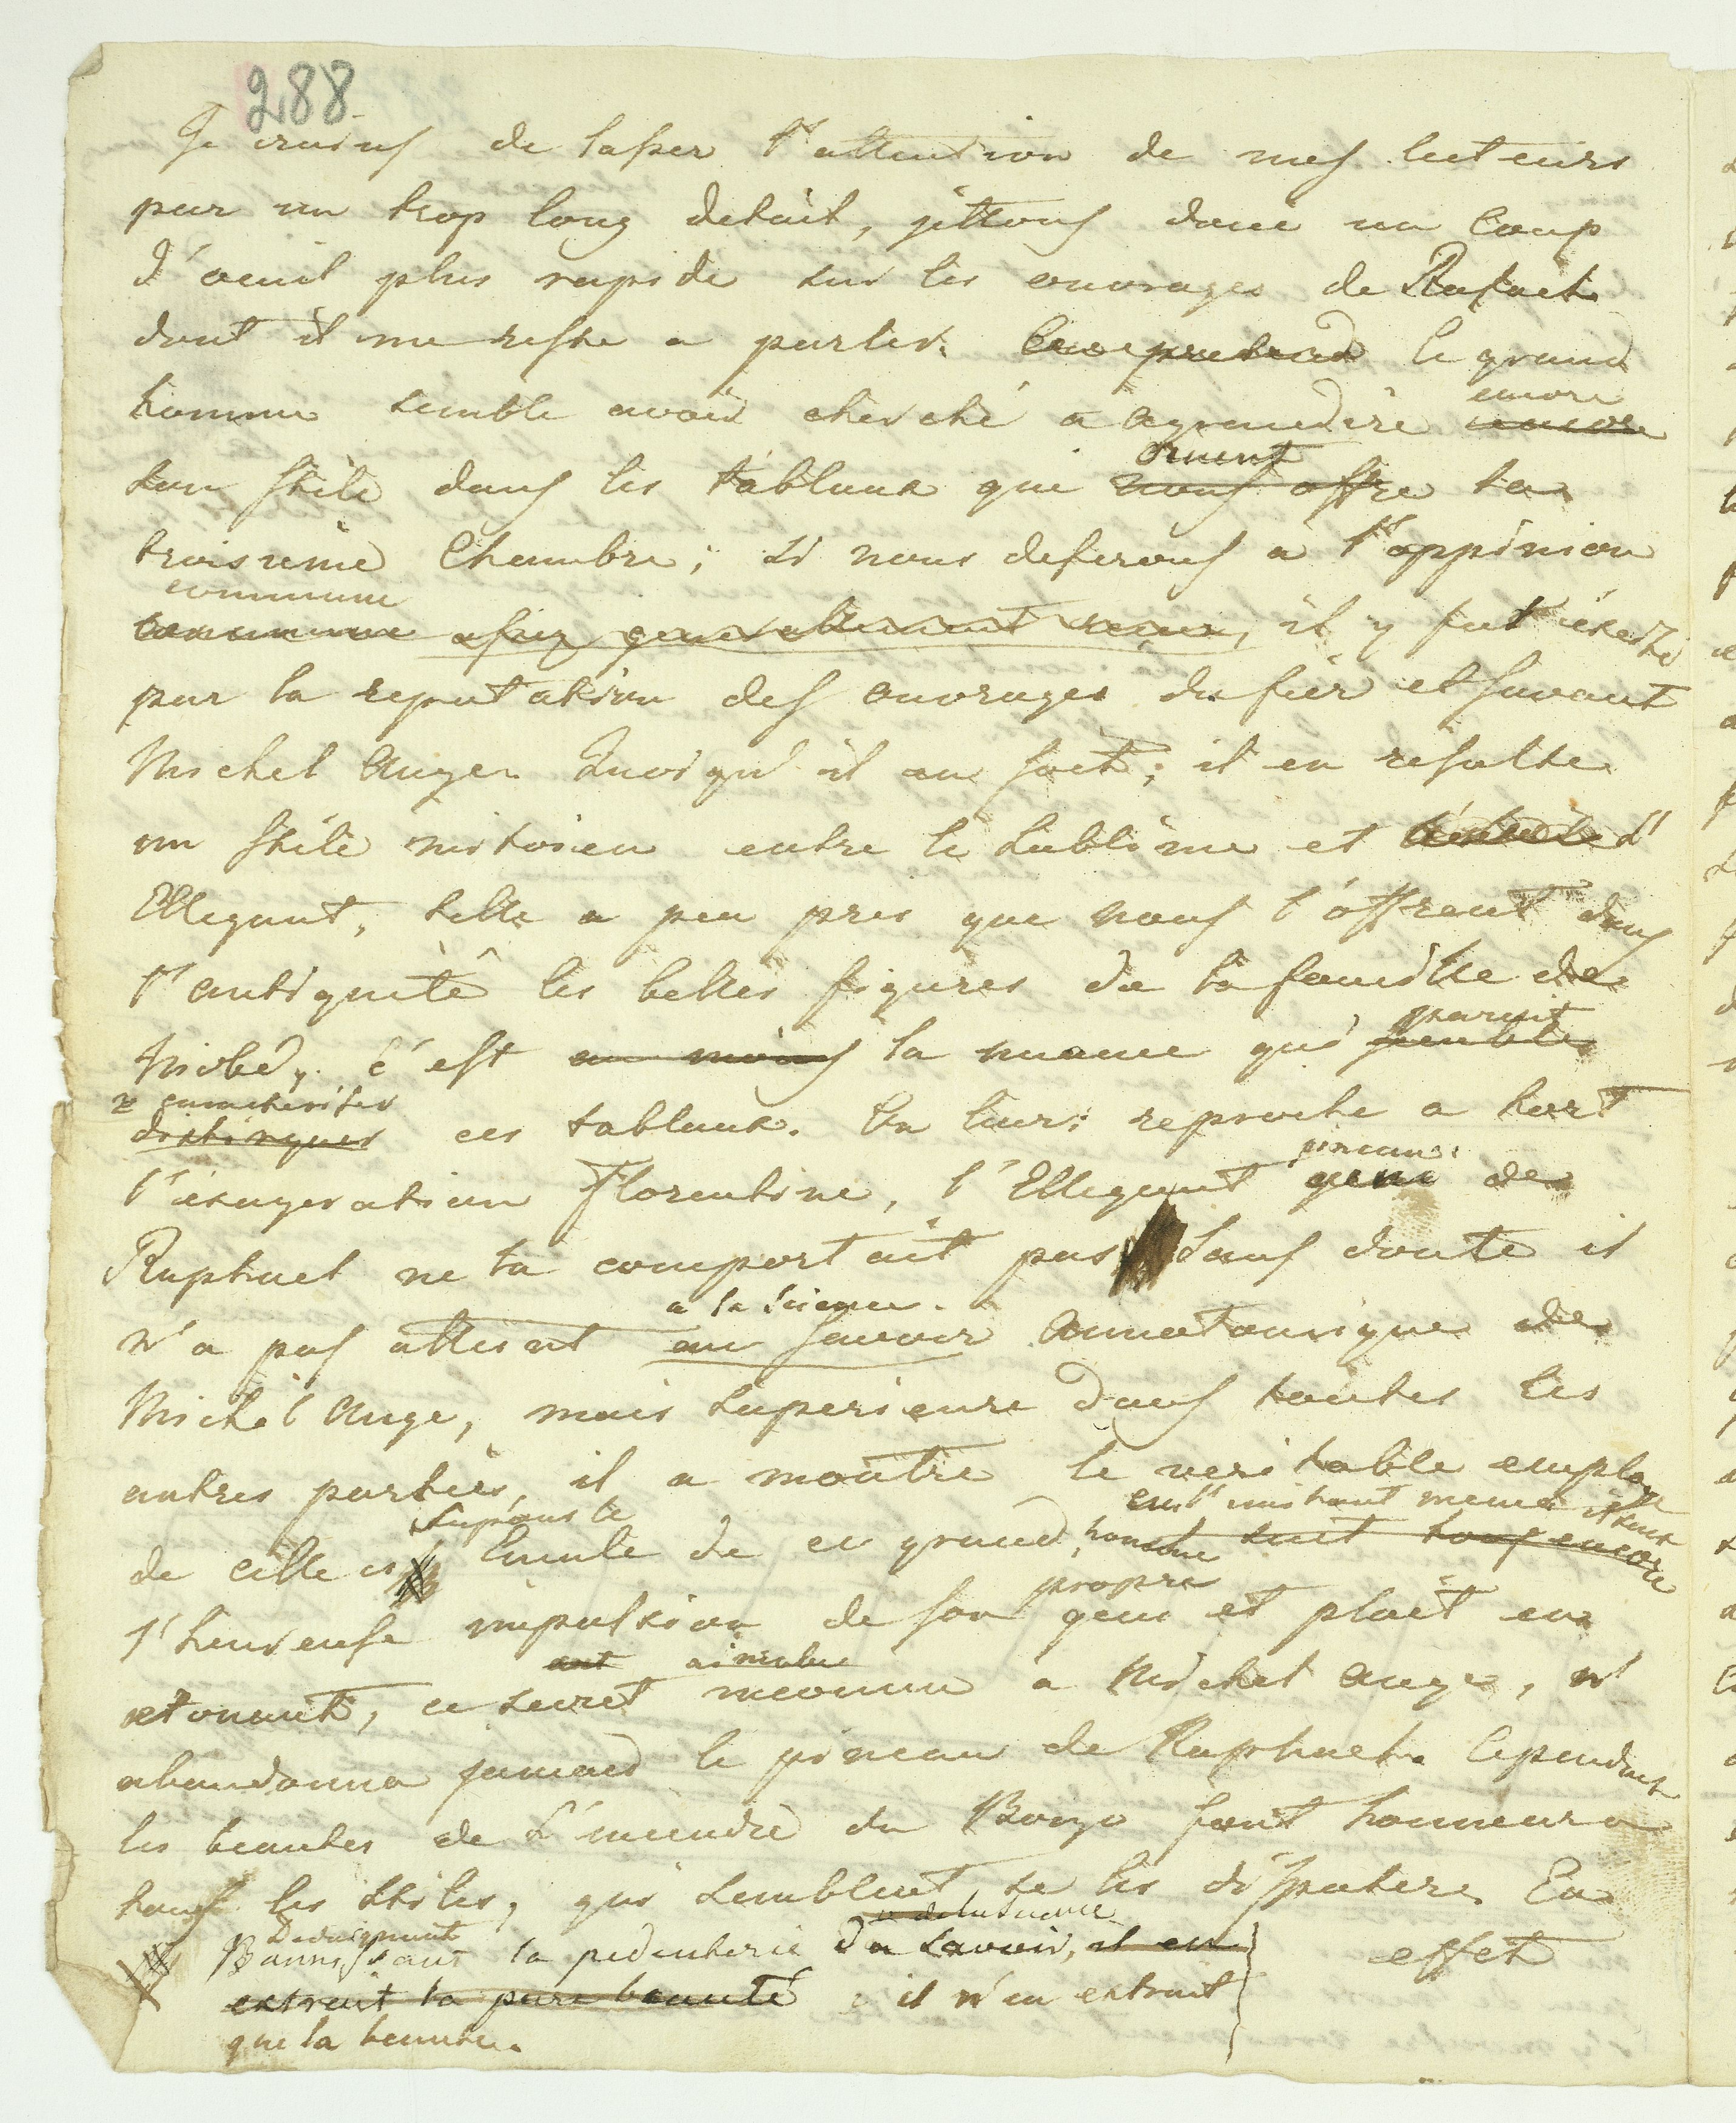 288
Je crains de lasser l'attention de mes lecteurs
par un trop long detail, jettons donc un coup
d'oeuil plus rapide sur les ouvrages de Rafael
dont il me reste a parler. le grand
homme semble avoir cherché a agrandire encore
encore
son stile dans les tableaux que nous offre la
ornent
troisieme Chambre; si nous deferons a l'oppinion
commune
commune assez generallement recue, il y fut éxcité
par la reputation des ouvrages du fier et savant
Michel Ange. Quoi qu'il en soit; il en resulte
un stile mitoien entre le sublime et l'
Ellegant, telle a peu pres que nous l'offrent dans
l'antiquité les belles figures de la famille de
Niobé, c'est au moins la nuance qui semble
parait
distinguer ces tableaux. On leurs reproche a tort
caracteriser
l'éxageration Florentine, l'Ellegant geni de
pinceau
Raphael ne la comportait pas sans doute il
n'a pas atteint au savoir annatomique de
a la science
Michel Ange, mais superieure dans toutes les
autres parties, il a montré le veritable emploi
de celle ci Emule de ce grand homme suit tous encore
en l'imitant meme il suit
l'heureuse impulsion de son geni et plait en
propre
etonant, ce secret inconnu a Michel Ange, n'
aimable
abandonna jamais le pinceau de Raphael. Cependant
les beautes de L'incendie du Borgo font honneur a
tous les stiles, qui semblent se les disputer. En
effet
Bannissant la pedenterie du savoir, il en
Dedaignant
de la science
extrait la pure beauté ; il n'en extrait
que la beauté.